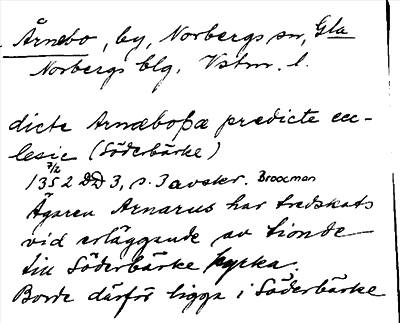 Årnebo, by, Norbergs sn, Gla
Norbergs blg, Vstm. l.
dicte Arnæboþæ predicte ecc-
lesie (Söderbärke)
7/2
1352 DD 3, s. 3 avskr. Brocman
Ägaren Arnarus har tredskats
vid erläggande av tionde
till Söderbärke kyrka.
Borde därför ligga i Söderbärke